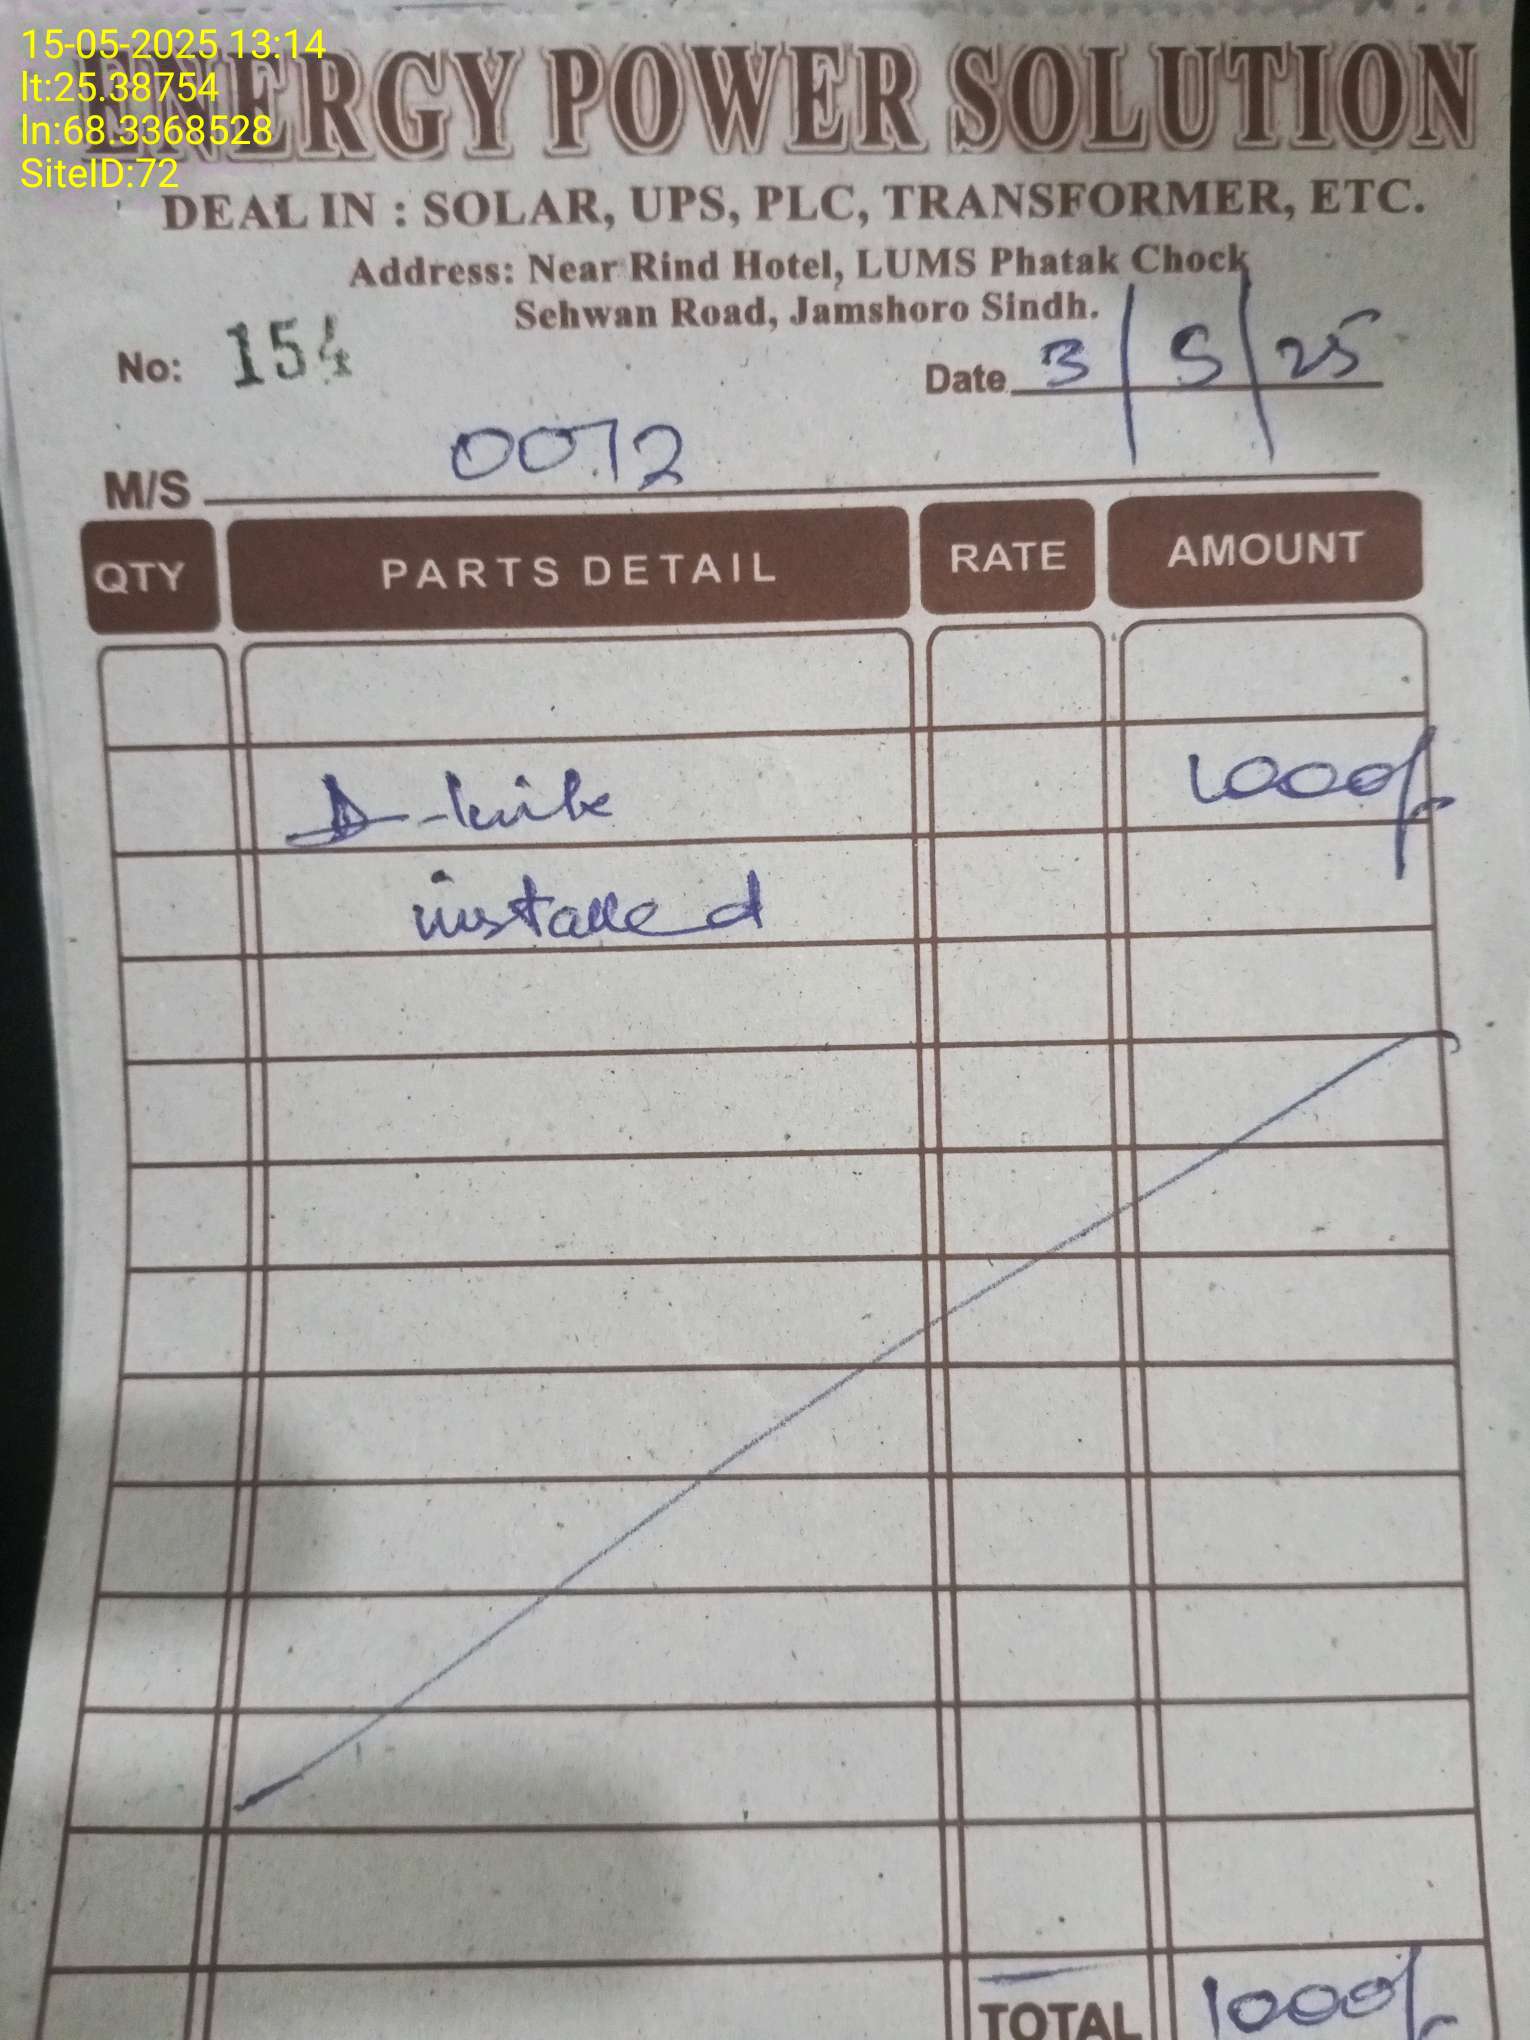 15-05-2025 13:14
lt:25.38754
ln:68.3368528
SiteID:72
ENERGY POWER SOLUTION
DEAL IN : SOLAR, UPS, PLC, TRANSFORMER, ETC.
Address: Near Rind Hotel, LUMS Phatak Chock
Sehwan Road, Jamshoro Sindh.
No: 154 Date 3/5/25
M/S 0072
QTY PARTS DETAIL RATE AMOUNT
1000/-
installed
TOTAL 1000/-